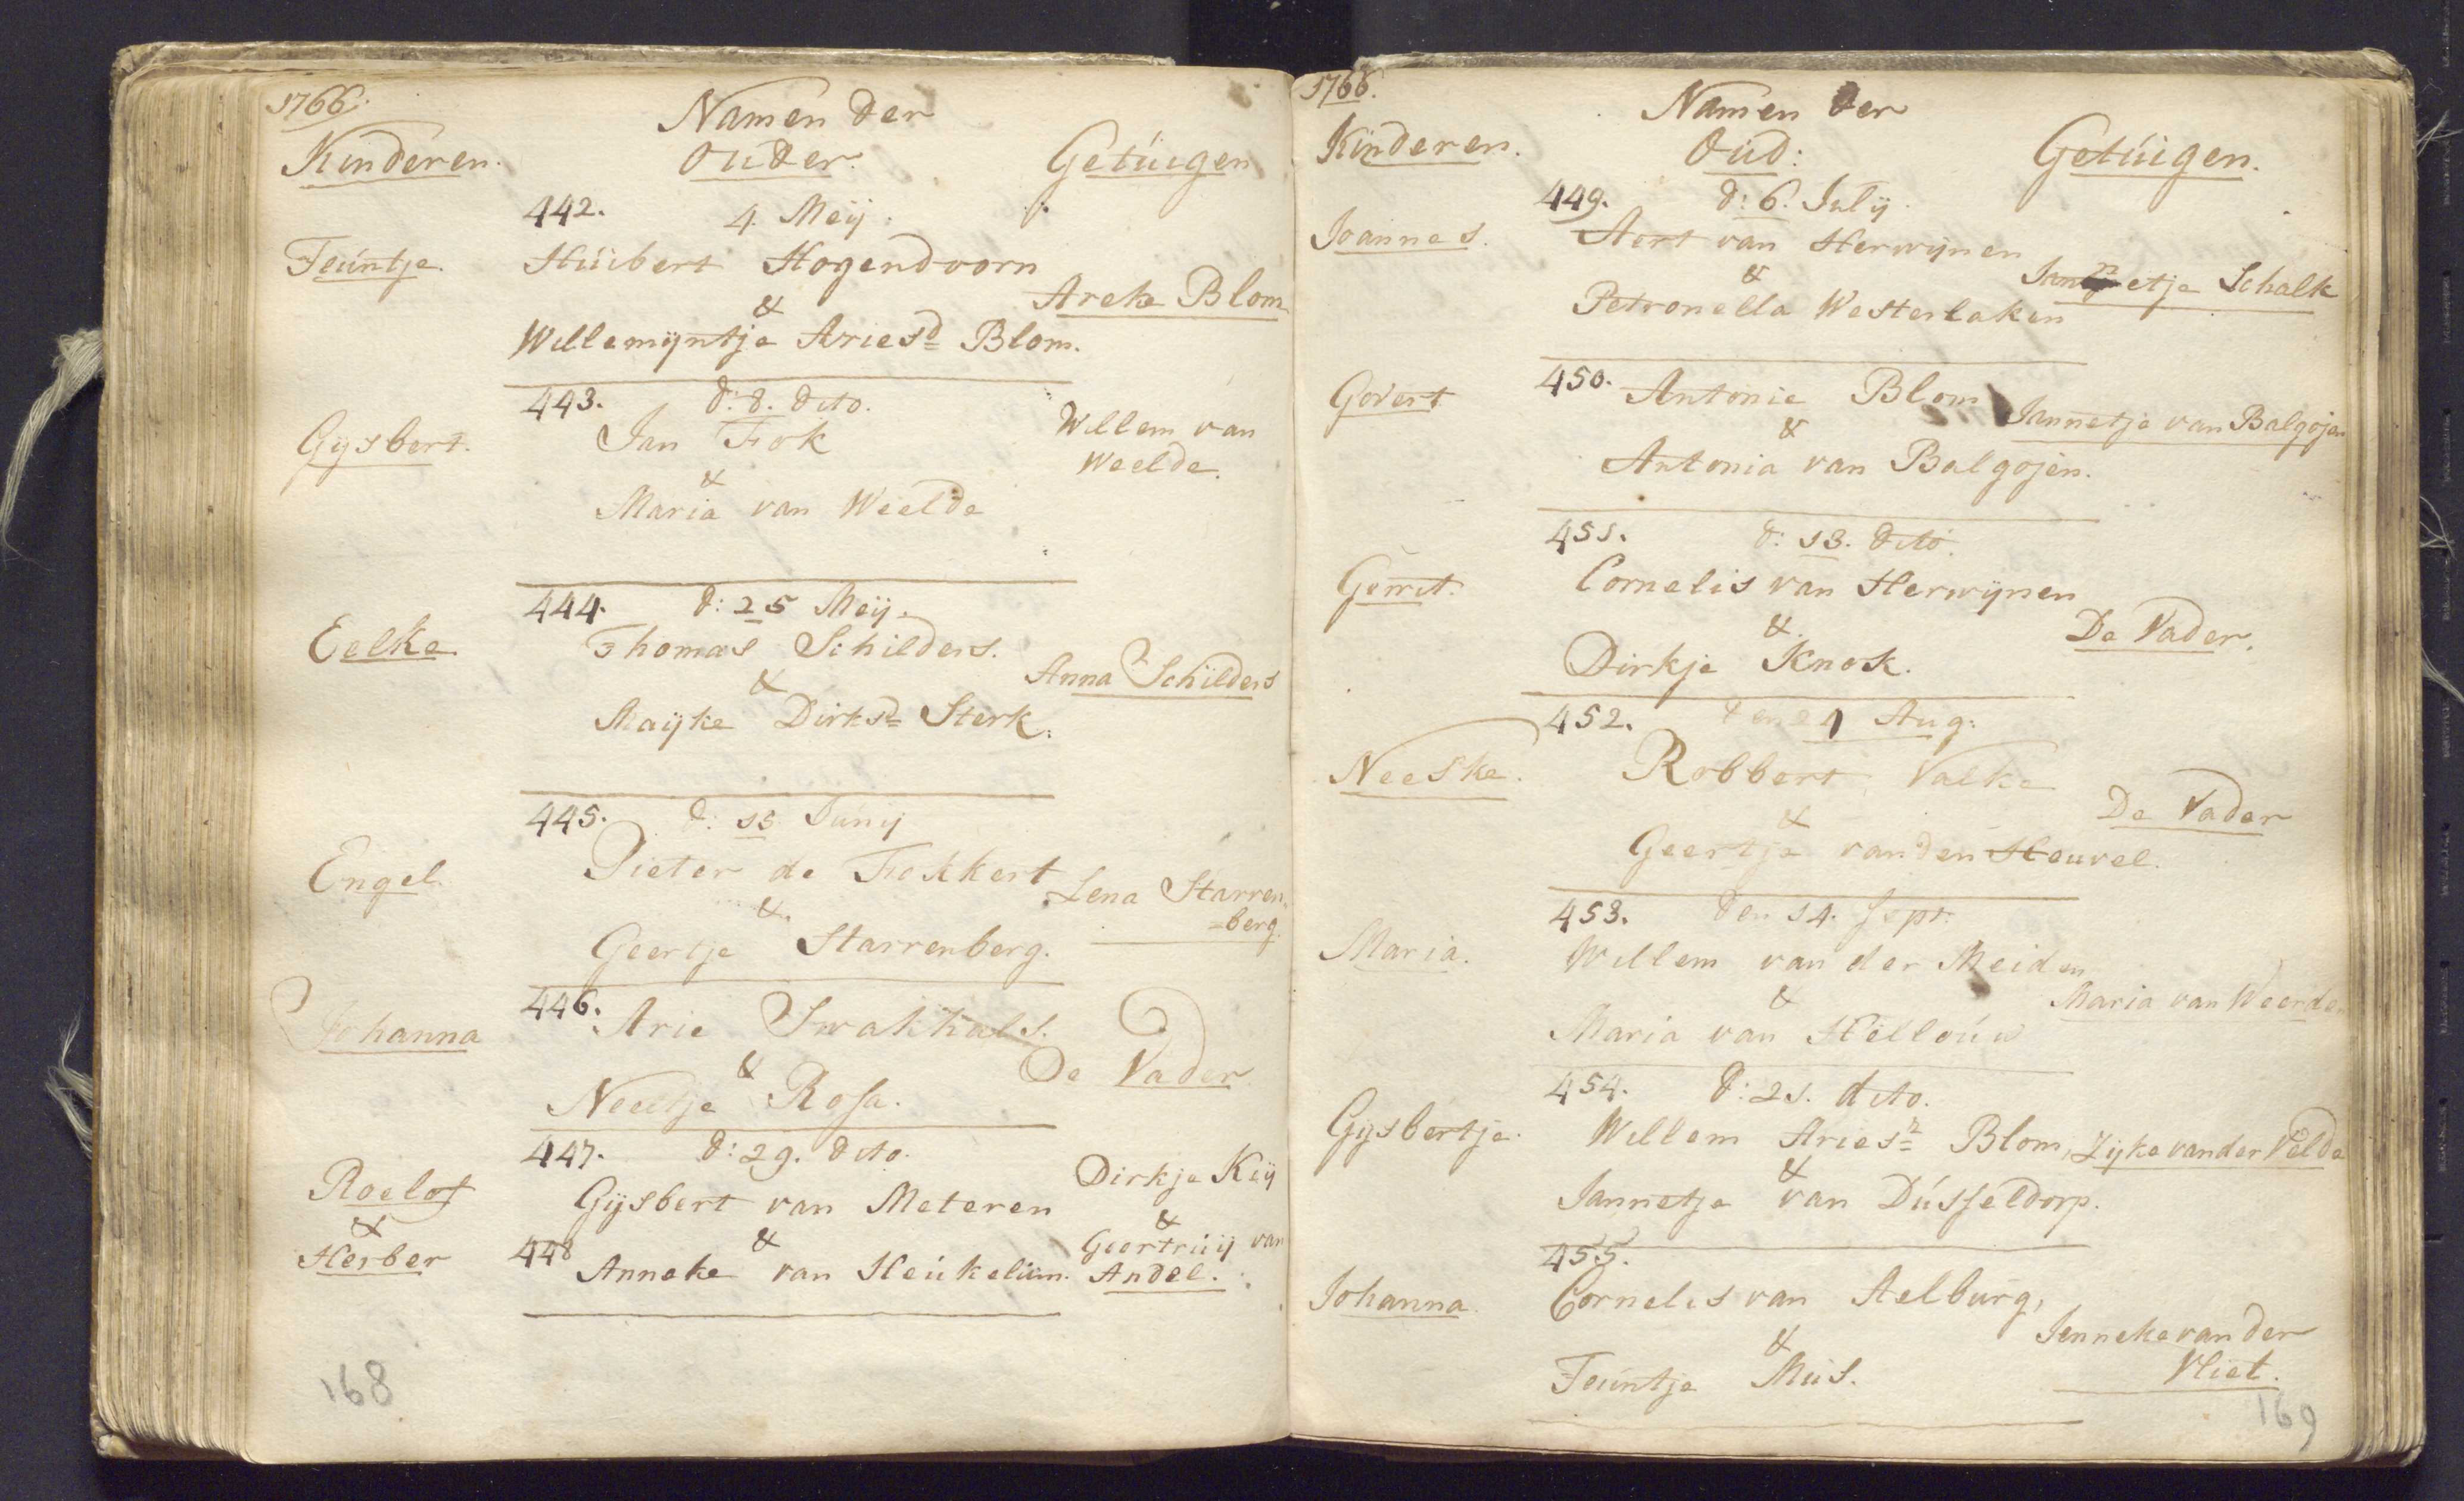 1766.
Namen der
Kinderen. Ouder. Getuigen
442. 4. Meij.
Teuntje. Huibert Hogendoorn
& Areke Blom
Willemijntje Ariesd= Blom.
443. d: 8. dito.
Gijsbert. Jan Fok Willem van
& Weelde.
Maria van Weelde
444. d: 25 Meij.
Eelke Thomas Schilders.
& Anna Schilders
Maijke Dirksd= Sterk.
445. d: 15 Junij
Engel. Pieter de Fekkert Lena Starren-
& =berg.
Geertje Starrenberg.
446. Arie Swakhals.
Johanna & De Vader
Neeltje Rosa.
447. d: 29. dito.
Roelof Gijsbert van Meteren Dirkje Keij
& & &
Herber 448 Anneke van Heukelum. Geertruij van
Andel.
168
1766.
Namen der
Kinderen. Oud: Getuigen.
449. d: 6. Julij.
Joannes. Aert van Herwijnen
& Jannetje Schalk
Petronella Westerlaken
Govert 450. Antonie Blom
& Jannetje van Balgojen
Antonia van Balgojen.
451. d: 13. dito.
Gerrit. Cornelis van Herwijnen
& De Vader.
Dirkje Knok.
452. Aug:
Neeske. Robbert Valke
& De Vader
Geertje van den Heuvel.
453. den 14. Sept.
Maria. Willem van der Meiden
& Maria van Weerden
Maria van Hellouw
454. d: 21. dito.
Gijsbertje. Willem Ariesz= Blom, Zijke van der Velde
&
Jannetje van Dusseldorp.
455.
Johanna. Cornelis van Aelburg,
& Jenneke van der
Teuntje Mus. Vliet.
169